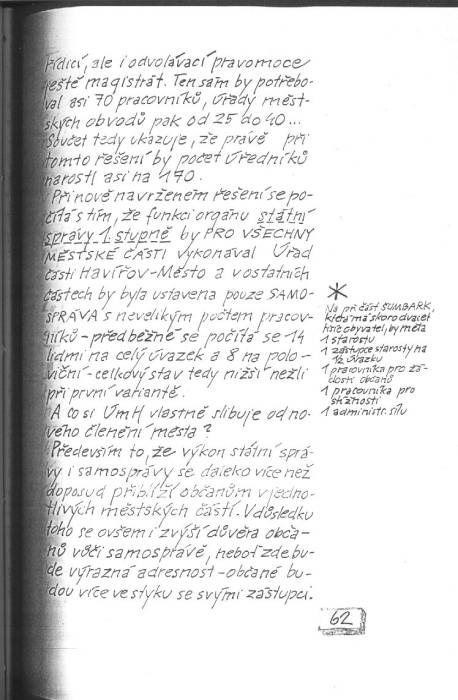 řídící, ale i odvolávací pravomoce
ještě magistrát. Ten sám by potřebo-
val asi 70 pracovníků, úřady měst-
ských obvodů pak od 25 do 40...
Součet tedy ukazuje, že právě při
tomto řešení by počet úředníků
narostl asi na 170.
Při nově navrženém řešení se po-
čítá s tím, že funkci orgánu státní
správy 1. stupně by PRO VŠECHNY
MĚSTSKÉ ČÁSTI vykonával Úřad
části Havířov-Město a v ostatních
částech by byla ustavena pouze SAMO-
SPRÁVA s nevelikým počtem pracov-
níků - předběžně se počítá se 14
lidmi na celý úvazek a 8 na polo-
viční - celkový stav tedy nižší nežli
při první variantě.
A co si ÚmH vlastně slibuje od no-
vého členění města?
Především to, že výkon státní sprá-
vy i samosprávy se daleko více než
doposud přiblíží občanům v jedno-
tlivých městských částí. V důsledku
toho se ovšem i zvýší důvěra obča-
nů vůči samosprávě, neboť zde bu-
de výrazná adresnost - občané bu-
dou více ve styku se svými zástupci.
*
Na př. část ŠUMBARK,
která má skoro dvacet
tisíc obyvatel, by měla
1 starostu
1 zástupce starosty na
1/2 úvazku
1 pracovníka pro žá-
dosti občanů
1 pracovníka pro
stížnosti
1 administr. sílu
62